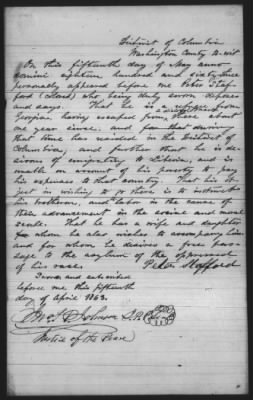 District of Columbia
Washington County to wit
On this fifteenth day of May anno
domini eighteen hundred and sixty three
personally appeared before me Peter Staf-
ford (Colored) who being duly sworn deposes
and says. That he is a refugee from
Georgia having escaped from there about
one year since, and
that time has resided in the District of
Columbia, and further that he is de-
sirous of emigrating to Liberia, and is
unable on account of his poverty to pay
his expenses to that country. That his ob-
ject in wishing to go there is to instruct
his brethren, and labor in the cause of
their advancement in the social and moral
scale. That he has a wife and daughter
whom he also wishes to accompany him
and for whom he desires a free pas-
sage to the asylum of the oppressed
of his race. Peter Stafford
Sworn and subscribed
before me this fifteenth
day of April 1863.
Johnson J.P.
Justice of the Peace